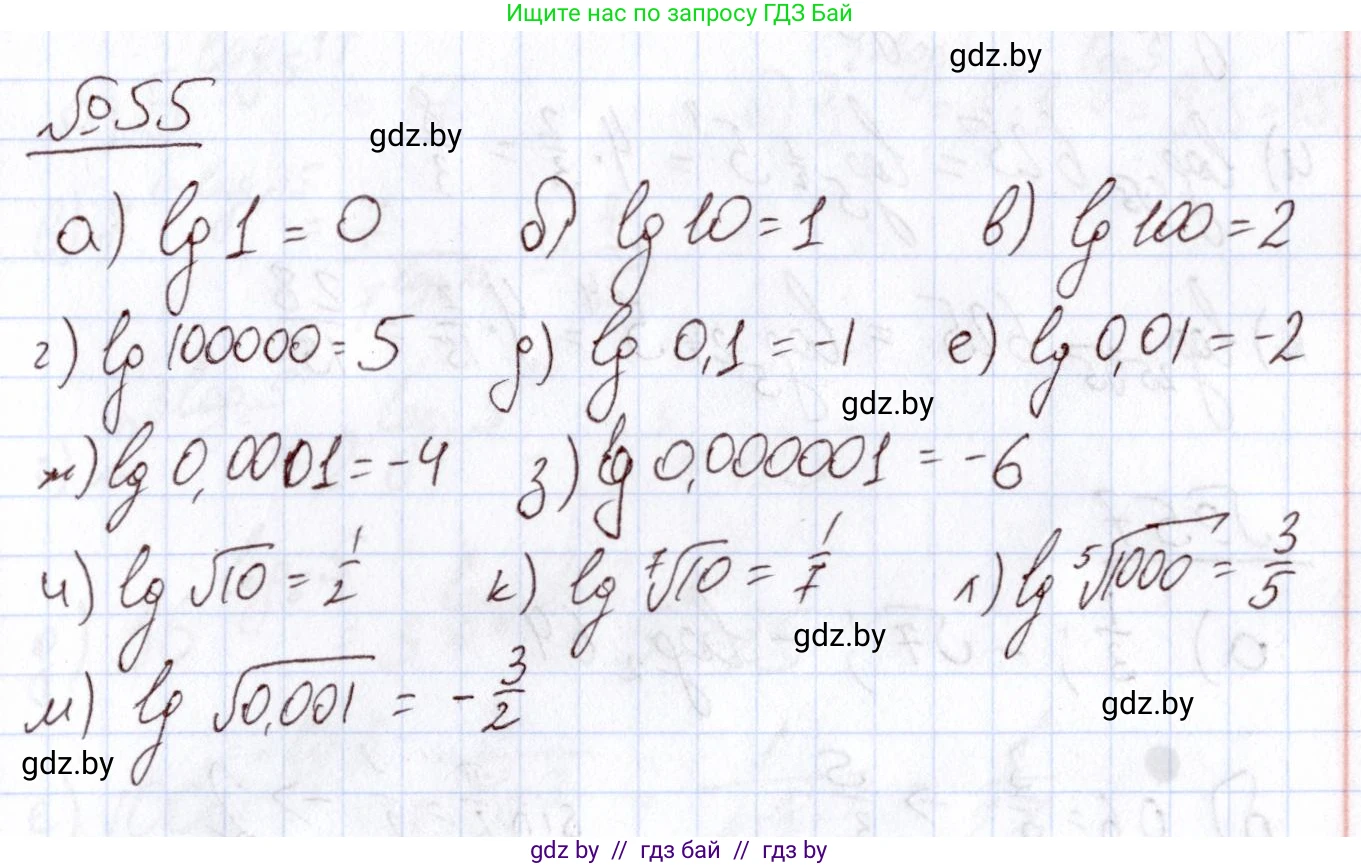 Ищите нас по запросу ГДЗ Бай
gdz.by
№55
gdz.by
а) lg 1 = 0 б) lg 10 = 1 в) lg 100 = 2
г) lg 100000 = 5 д) lg 0,1 = -1 е) lg 0,01 = -2
gdz.by
ж) lg 0,0001 = -4 з) lg 0,000001 = -6
и) lg √10 = 1/2 к) lg ⁷√10 = 1/7 л) lg ⁵√1000 = 3/5
gdz.by
м) lg √0,001 = - 3/2
gdz.by
gdz.by
gdz by // гдз бай // гдз by